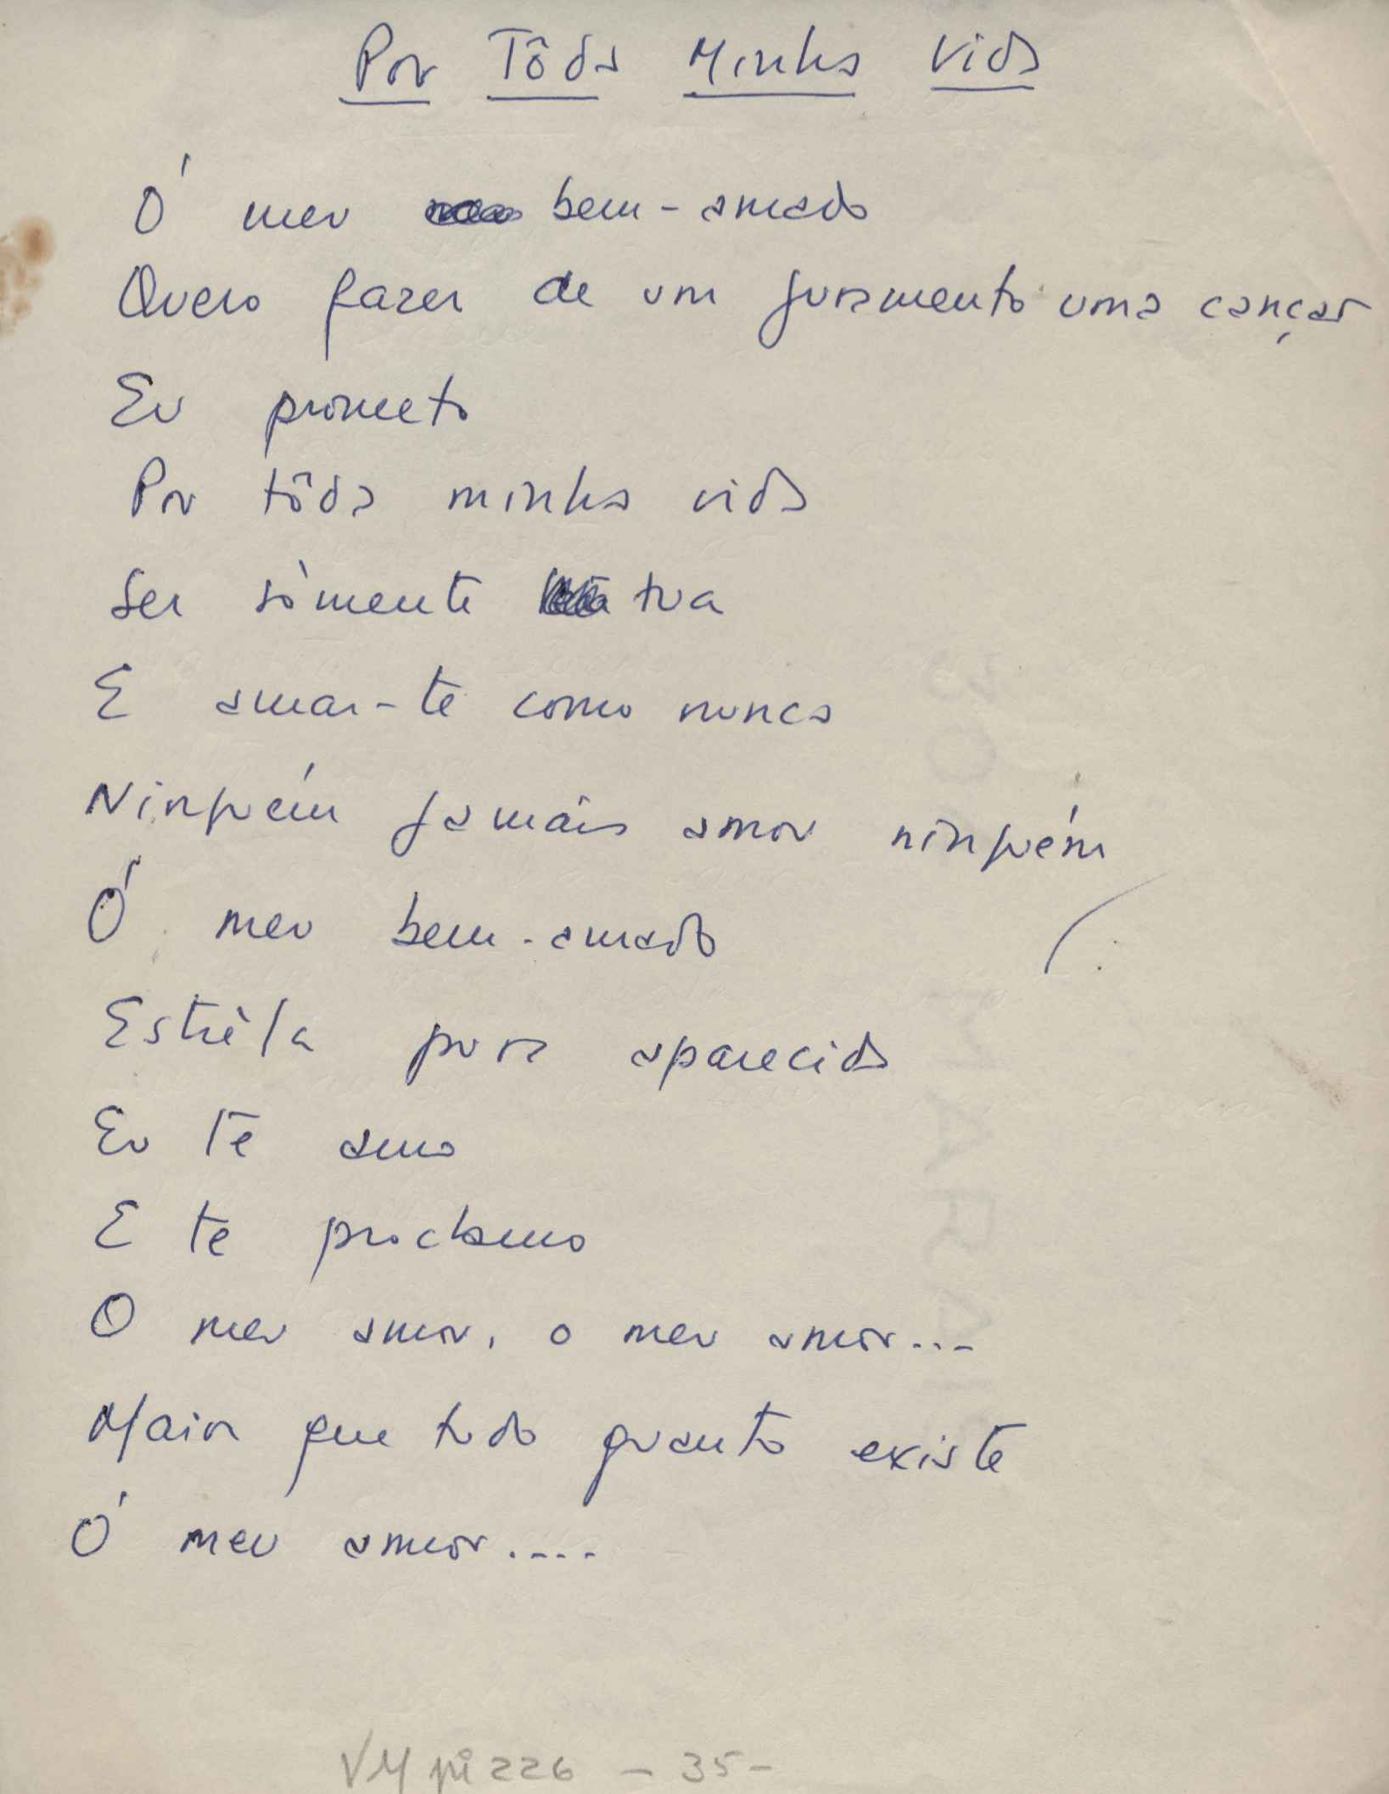 Por Tôda Minha Vida
Ó meu bem-amado
Quero fazer de um juramento uma canção
Eu prometo
Por tôda minha vida
Ser sòmente tua
E amar-te como nunca
Ninguém jamais amou ninguém
Ó meu bem-amado
Estrêla pura aparecida
Eu te amo
E te proclamo
O meu amor, o meu amor...
Maior que tudo quanto existe
Ó meu amor....
VM pi 226 - 35-